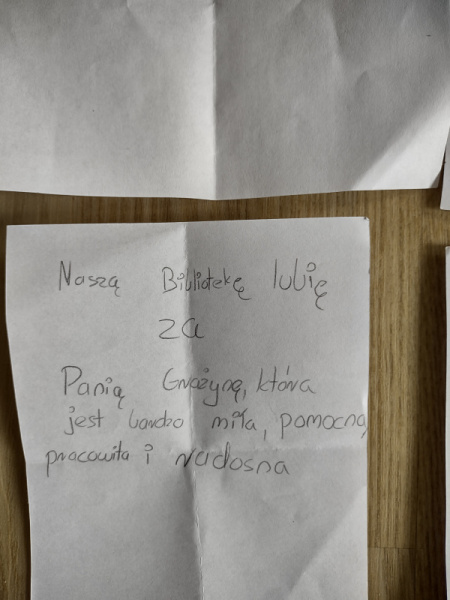 Naszą Bibliotekę lubię
za
Panią Grażynę, która
jest bardzo miła, pomocna,
pracowita i radosna